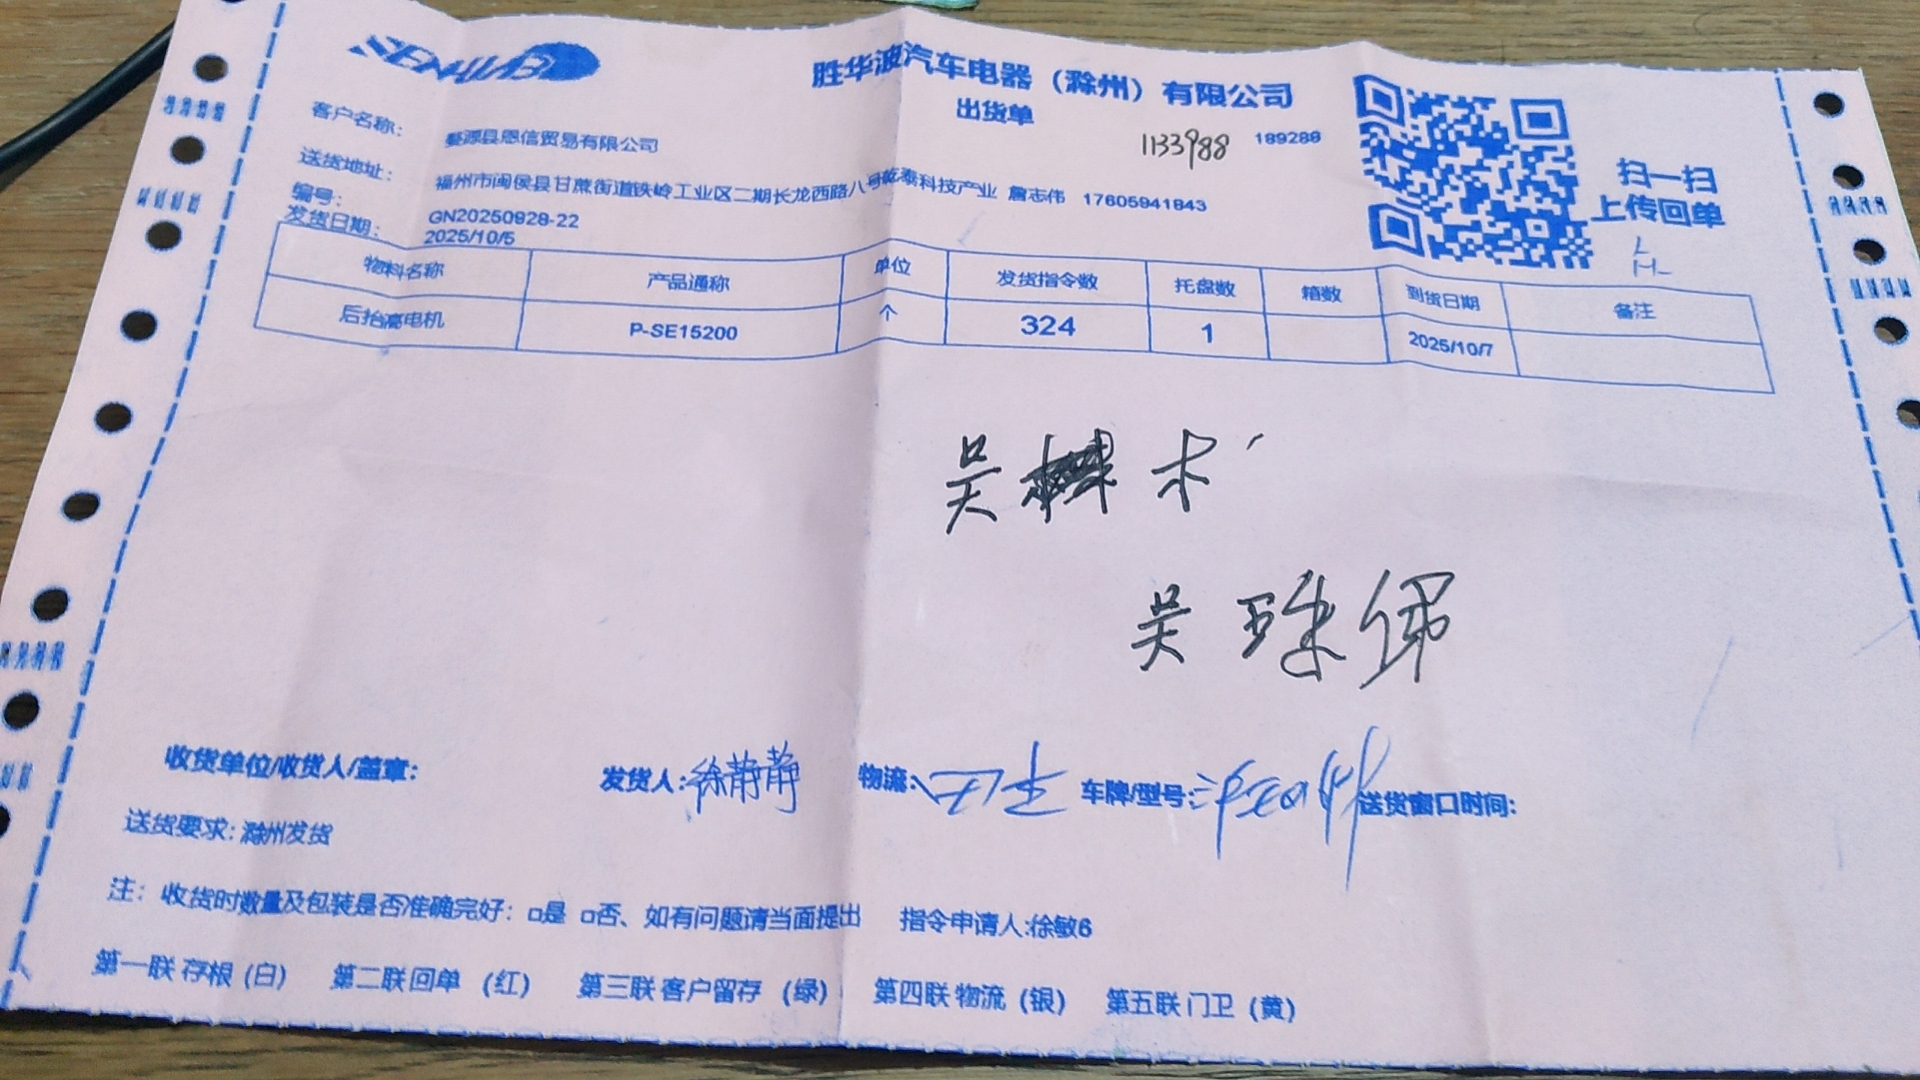 SENHWA
胜华波汽车电器（滁州）有限公司
出货单
1133988 189288
扫一扫
上传回单
客户名称： 婺源县恩信贸易有限公司
送货地址： 福州市闽侯县甘蔗街道铁岭工业区二期长龙西路八号乾泰科技产业 詹志伟 17605941843
编号： GN20250928-22
发货日期： 2025/10/5
物料名称 产品通称 单位 发货指令数 托盘数 箱数 到货日期 备注
后抬高电机 P-SE15200 个 324 1 2025/10/7
吴 木
吴珠俤
收货单位/收货人/盖章： 发货人:徐静静 物流: 车牌/型号: 送货窗口时间:
送货要求: 滁州发货
注： 收货时数量及包装是否准确完好：□是 □否、如有问题请当面提出 指令申请人:徐敏6
第一联 存根（白） 第二联 回单（红） 第三联 客户留存（绿） 第四联 物流（银） 第五联 门卫（黄）